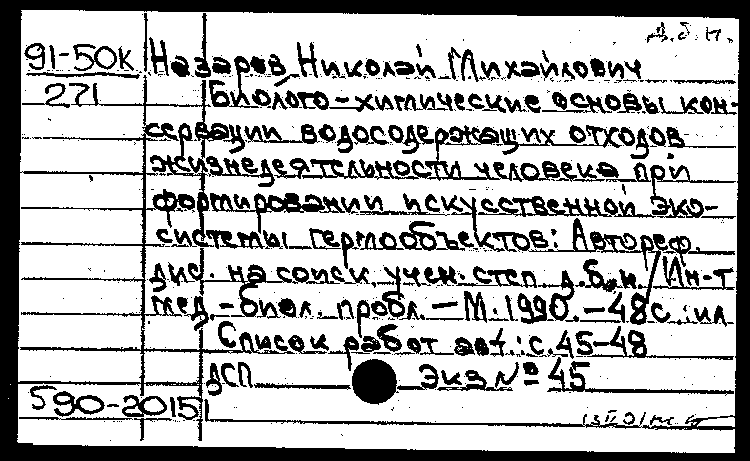 Д.б.н.
91-50к Назаров Николай Михайлович
271 Биолого-химические основы кон-
сервации водосодержащих отходов
жизнедеятельности человека при
формировании искусственной эко-
системы гермообъектов: Автореф.
дис. на соиск. учен. степ д.б.н./Ин-т
мед.-биол. пробл.-М.1990.-48с.:ил
Список работ авт.:с.45-48
ДСП Экз №45
590-20151